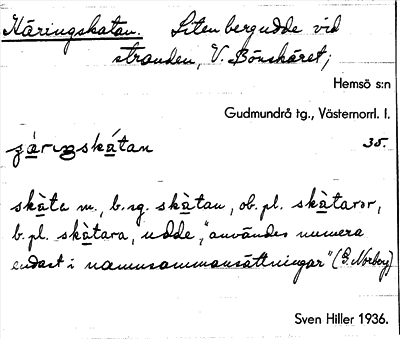 Käringskatan. Liten bergudde vid
stranden, V. Bönskäret;
Hemsö s:n
Gudmundrå tg., Västernorrl. l.
35.
skàta m., b. sg. skàtan, ob. pl. skàtaror,
b. pl. skàtara, udde, "användes numera
endast i namnsammansättningar" (E. Norberg)
Sven Hiller 1936.